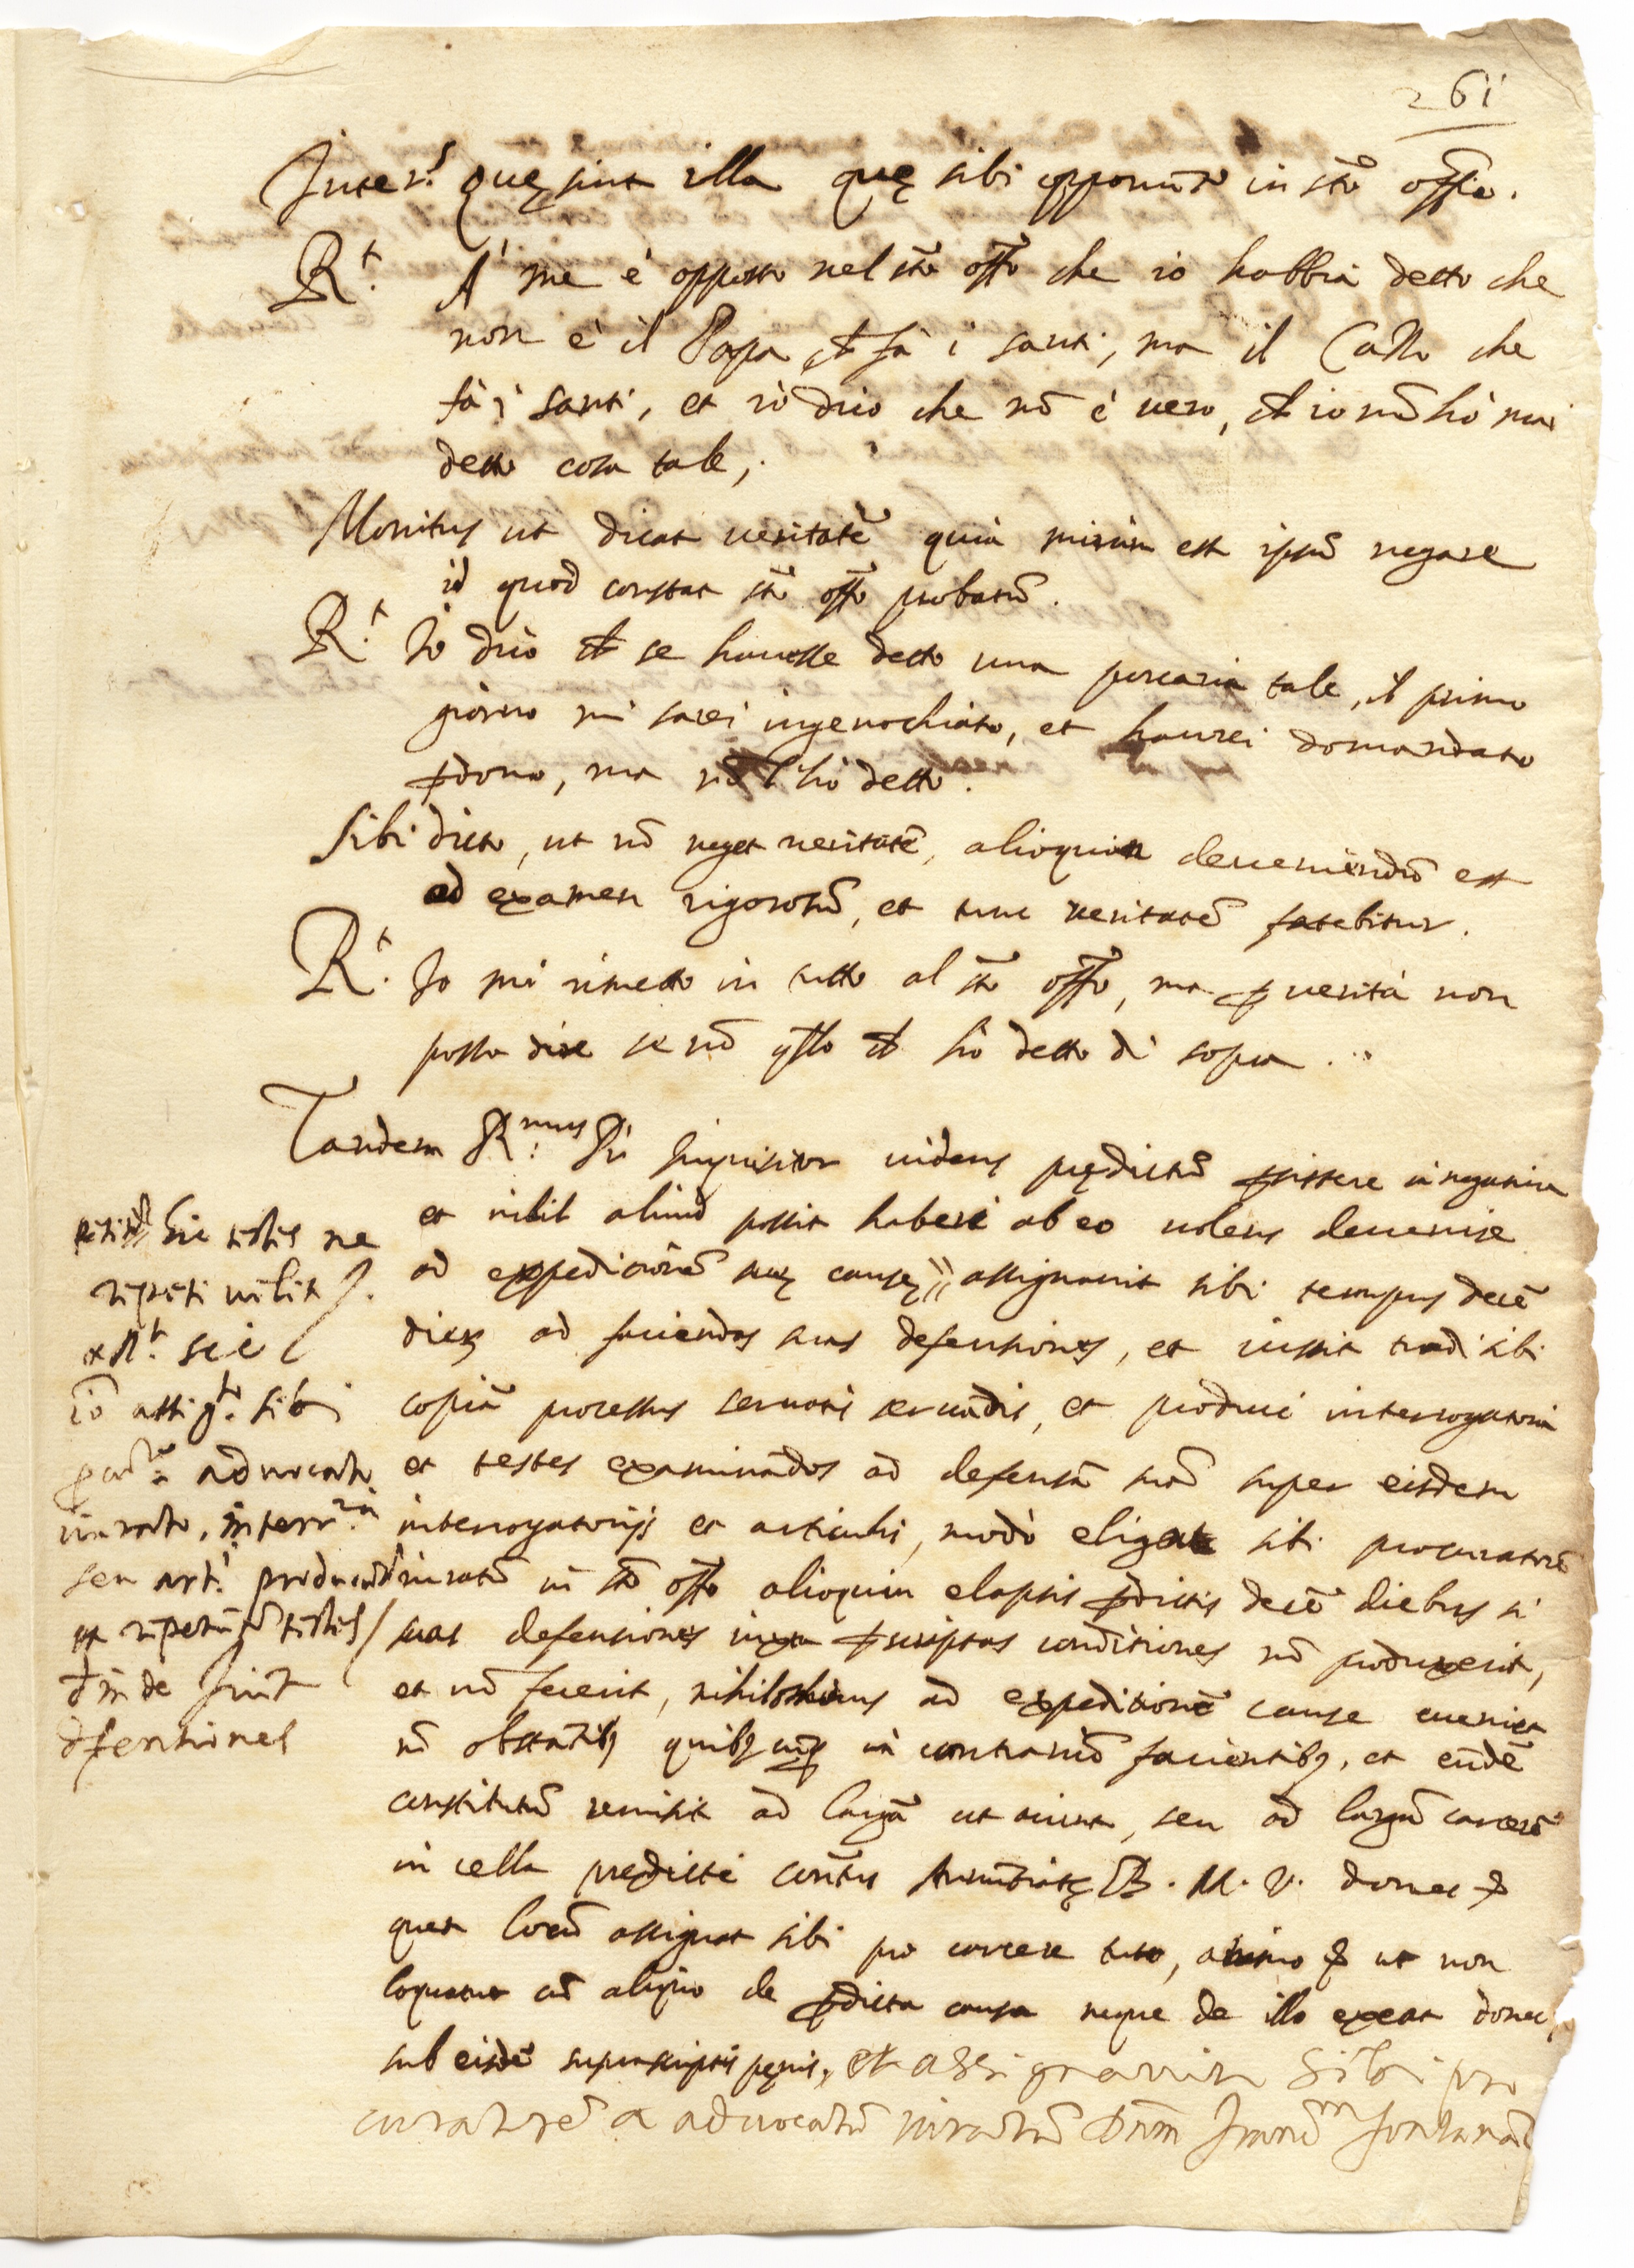 261
Inter.s quę sint illa quę sibi opponũt.r in sto offio.
R.t A' me è opposto nel sto offo che io habbia detto che
non è il Papa ch fà i santi, ma il Cazzo che
fà i santi, et io dico che nõ è uero, ch io nõ hò mai
detto cosa tale,.
Monitus ut dicat ueritatẽ quia mirũm est ipsũ negare
id quod constat sto offo probatũ.
R.t Io dico ch se hauesse detto una porcaria tale, il primo
giorno mi sarei ingenochiato, et haurei domandato
pdono, ma nõ l'hò detto.
Sibi dicto, ut nõ neget ueritatẽ, alioquin deueniendũ est
ad examen rigorosũ, et tunc ueritatẽ fatebitur.
R.t Io mi rimetto in tutto al sto offo, ma p uerità non
posso dire se nõ qsto ch hò detto di sopra ...
Tandem R.mus P. Inquisitor uidens prędictũ psistere in negatiua
et nihil aliud possit haberi ab eo uolens deuenire
ad expeditionẽ suę causę // assignauit sibi tempus decẽ
dierũ ad faciendas suas defensiones, et iussit tradi sibi
copiã processus seruatis seruãdis, et produci interrogatoria
et testes examinãdos ad defensã suã super eisdem
interrogatorijs et articulis, modò eligat sibi procuratorẽ
iuratũ in sto offo alioquin elapsis pdictis decẽ diebus si
suas defensiones iuxta pscriptas conditiones nõ produxerit,
et nõ fecerit, nihilominus ad expeditionẽ cause eueniet
nõ obstãtibq quibqcũq in contrariũ facientibq, et eũdẽ
constitutũ remisit ad largã ut aiunt, seu ad largũ carcerẽ
in cella predicti cõntus Anũtiatę B. M. V. donec p
quem locũ assignat sibi pro carcere tuto, animo p ut non
loquatur cũ aliquo de pdicta causa neque de illo exeat donec
sub eisdẽ suprascriptis pęnis, et assignauit sibi pro
curatorẽ et aduocatũ iuratũ Dnm Fontanã
hic testes ne
repeti uelit /.
et R.t sic /
iõ assig.to sibi
aduocato
iurato, interr.ria
seu art.i producẽd
et repetũt.r testes /
deinde fiunt
defensiones